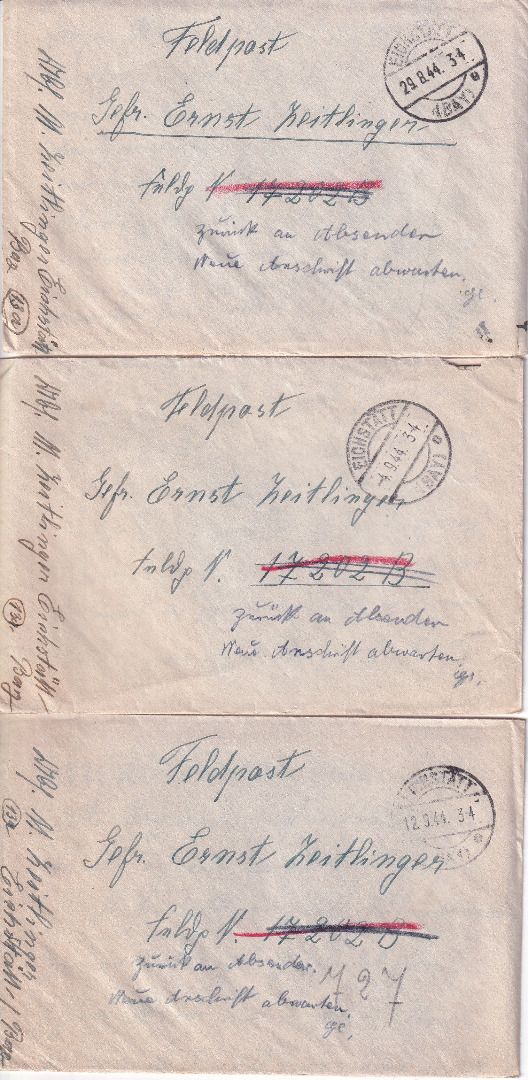 Feldpost
EICHSTÄTT
29.8.44. 3-4
(BAY)
Gefr. Ernst Zeitlinger
Feldp N. 17 202 B
zurück an Absender
Neue Anschrift abwarten.
Abs. M. Zeitlinger Eichstätt
Bay. (13a)
Feldpost
EICHSTÄTT
-4.9.44. 3-4
(BAY)
Gefr. Ernst Zeitlinger
Feldp N. 17 202 B
zurück an Absender
Neue Anschrift abwarten.
Abs. M. Zeitlinger Eichstätt
(13a) Bay
Feldpost
EICHSTÄTT
12.9.44. 3-4
(BAY)
Gefr. Ernst Zeitlinger
Feldp N. 17 202 B
zurück an Absender.
Neue Anschrift abwarten.
727
Abs. M. Zeitlinger
(13a) Eichstätt / Bay